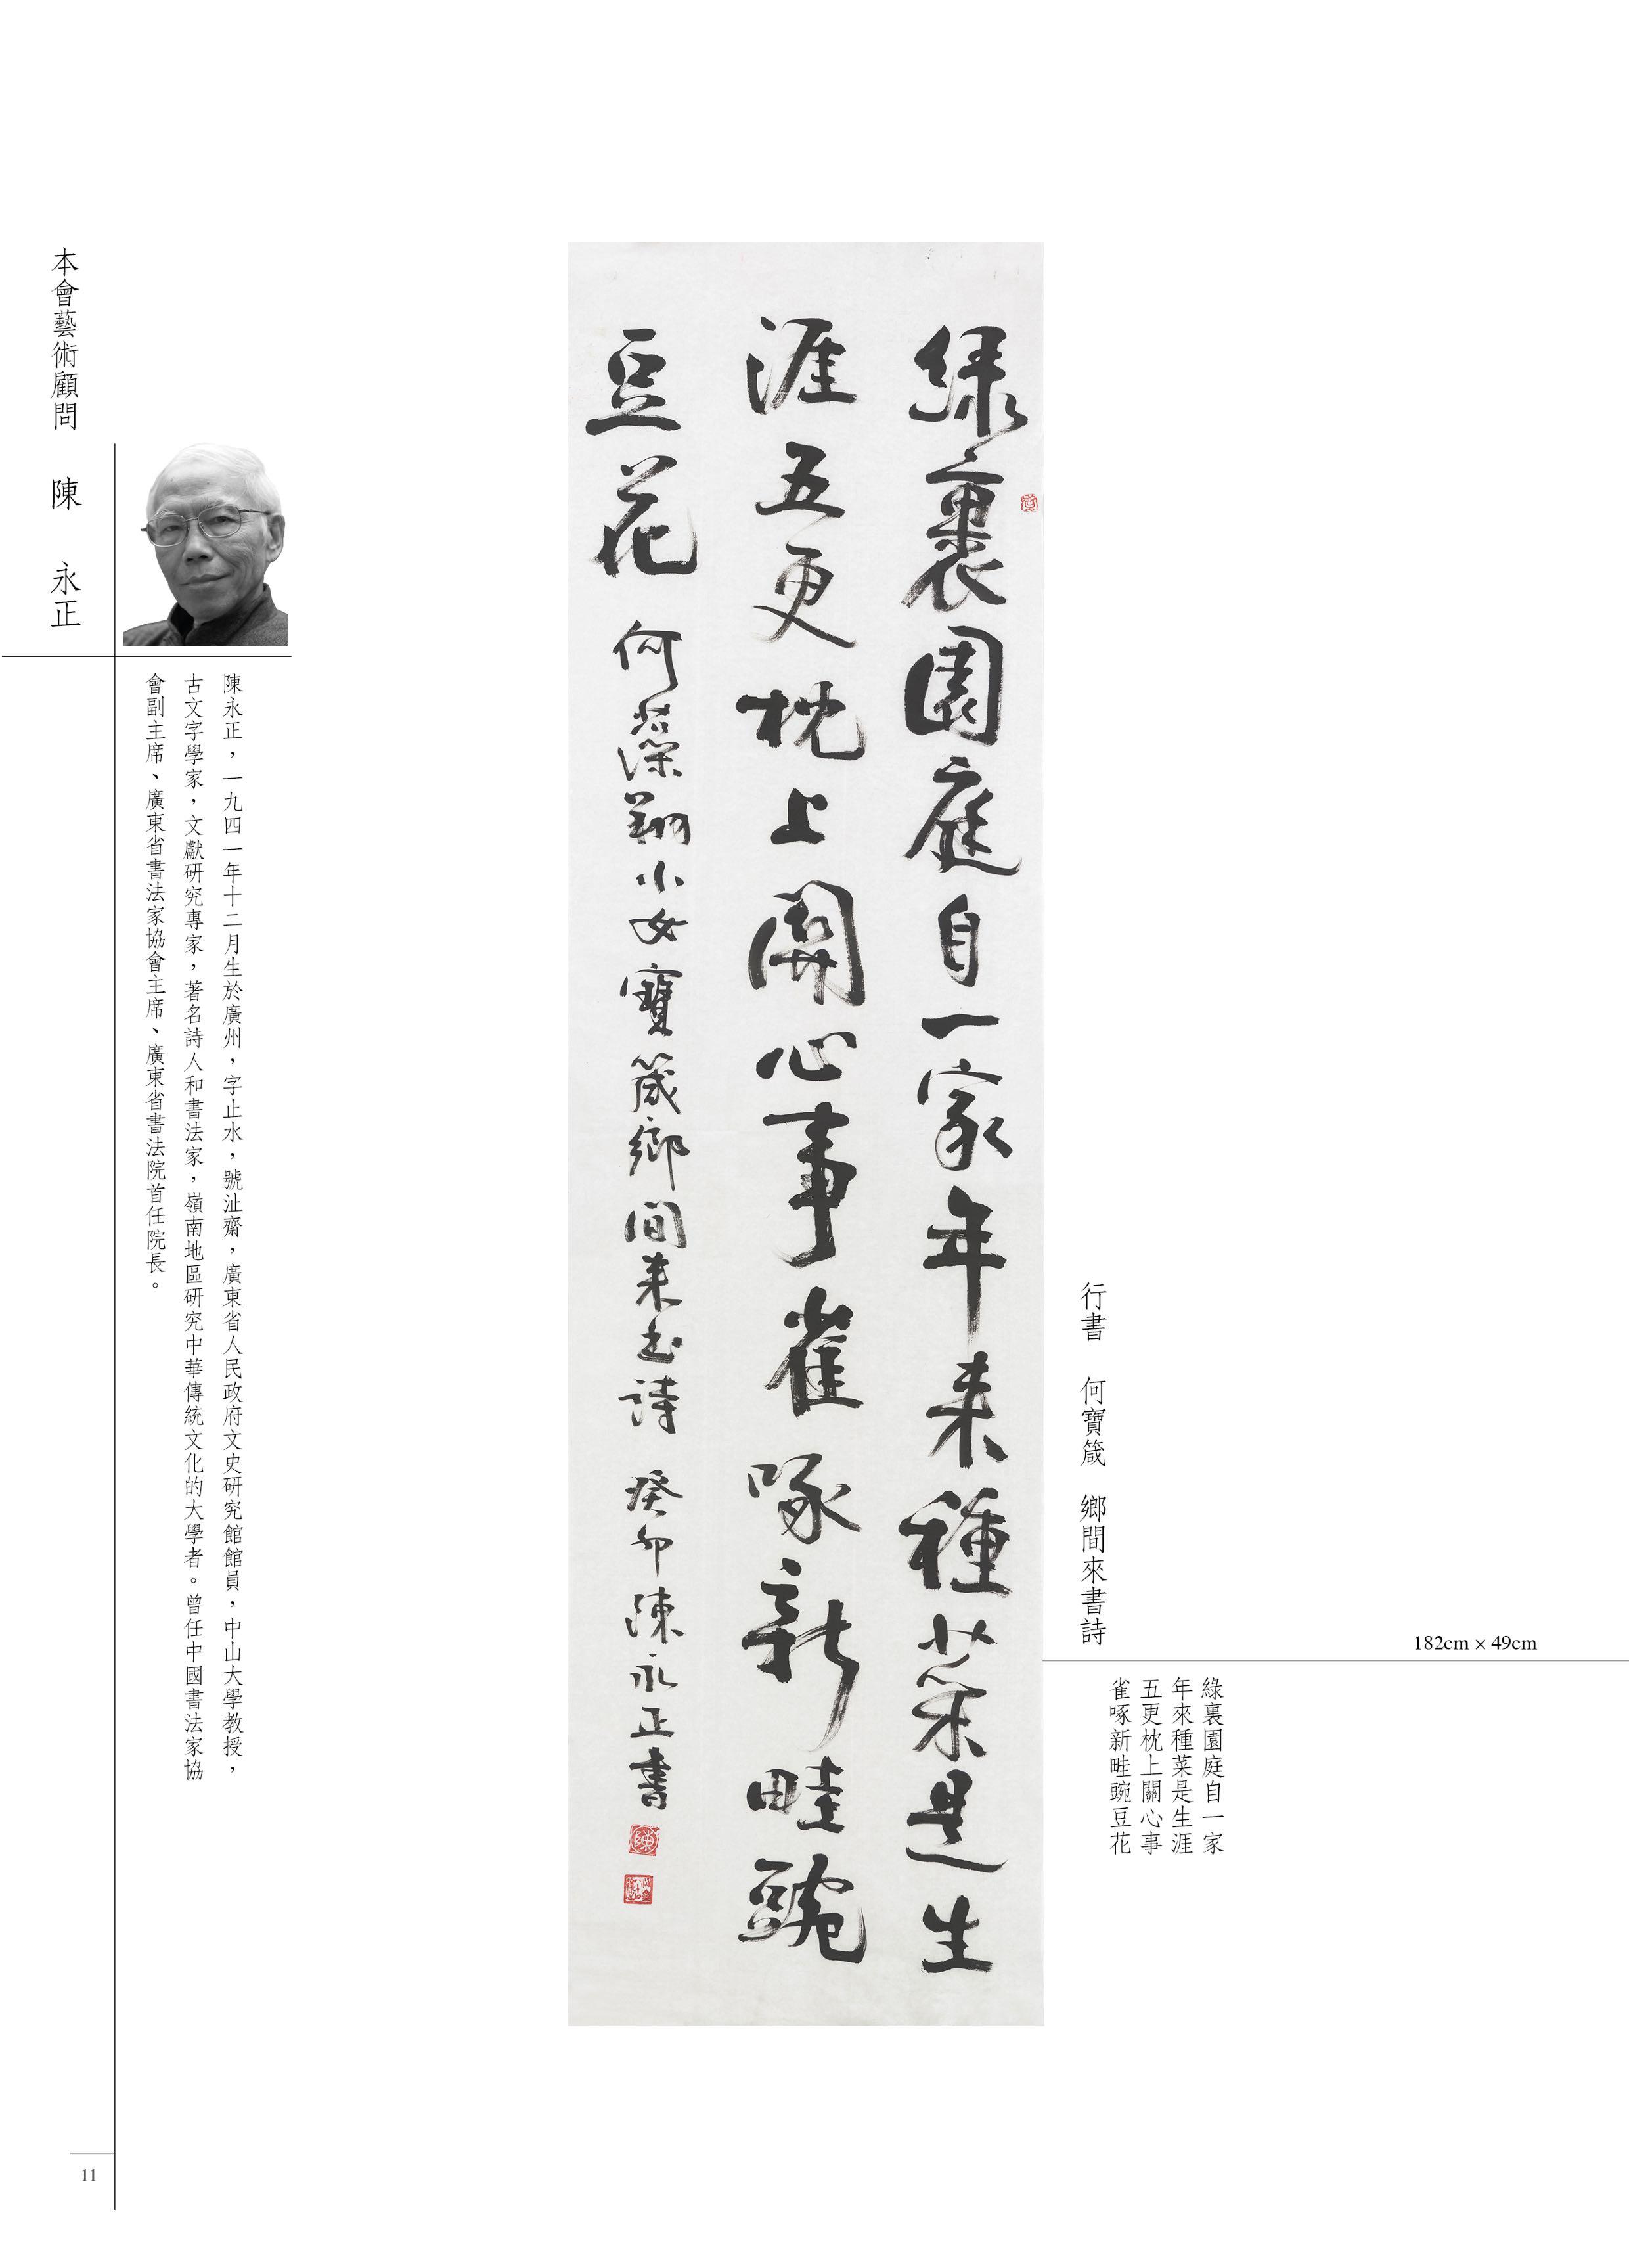 行書　何寶箴　鄉間來書詩
182cm × 49cm
綠裏園庭自一家
年來種菜是生涯
五更枕上關心事
雀啄新畦豌豆花
緑裏園庭自一家年来種菜是生
涯五更枕上關心事雀啄新畦豌
豆花　何藻翔小女寶箴鄉間来書詩　癸卯陳永正書
本會藝術顧問　陳　永正
陳永正，一九四一年十二月生於廣州，字止水，號沚齋，廣東省人民政府文史研究館館員，中山大學教授，
古文字學家，文獻研究專家，著名詩人和書法家，嶺南地區研究中華傳統文化的大學者。曾任中國書法家協
會副主席、廣東省書法家協會主席、廣東省書法院首任院長。
11